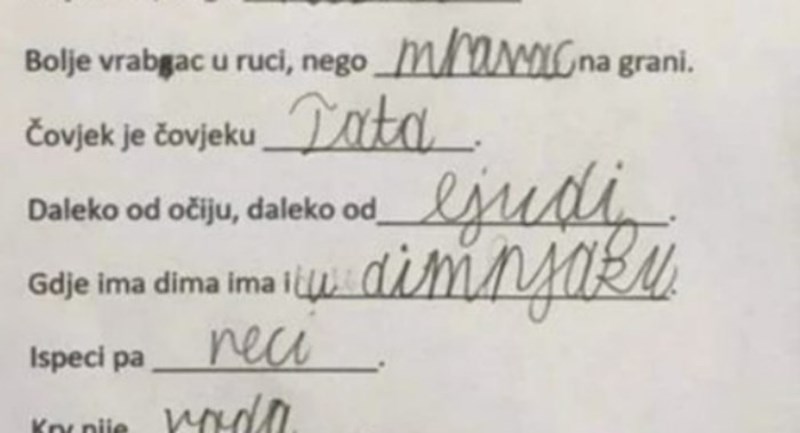 Bolje vrabac u ruci, nego mravac na grani.
Čovjek je čovjeku Tata.
Daleko od očiju, daleko od ejudi.
Gdje ima dima ima i u dimnjaku.
Ispeci pa reci.
Krv nije voda